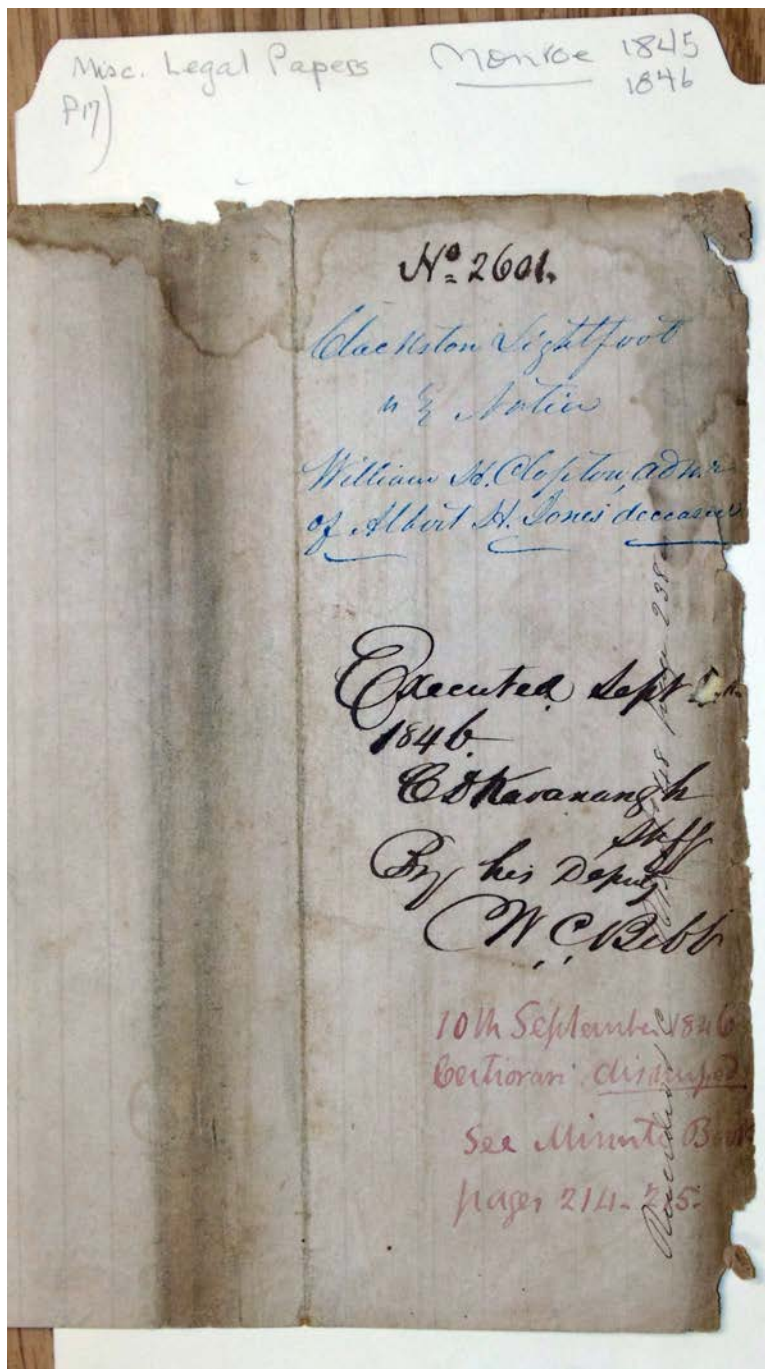 Misc. Legal Papers Monroe 1845
1846
P17)
Nº 2601.
Clackston Lightfoot
Notice
William H. Clopton, admr
of Albert H. Jones deceased
Executed Sept
1846
C D Kavanaugh
Shff
By his Deputy
W. C. Bibb
10th September 1846
Certiorari dismissed
See Minute Book
pages 214-
Recorded
page 238